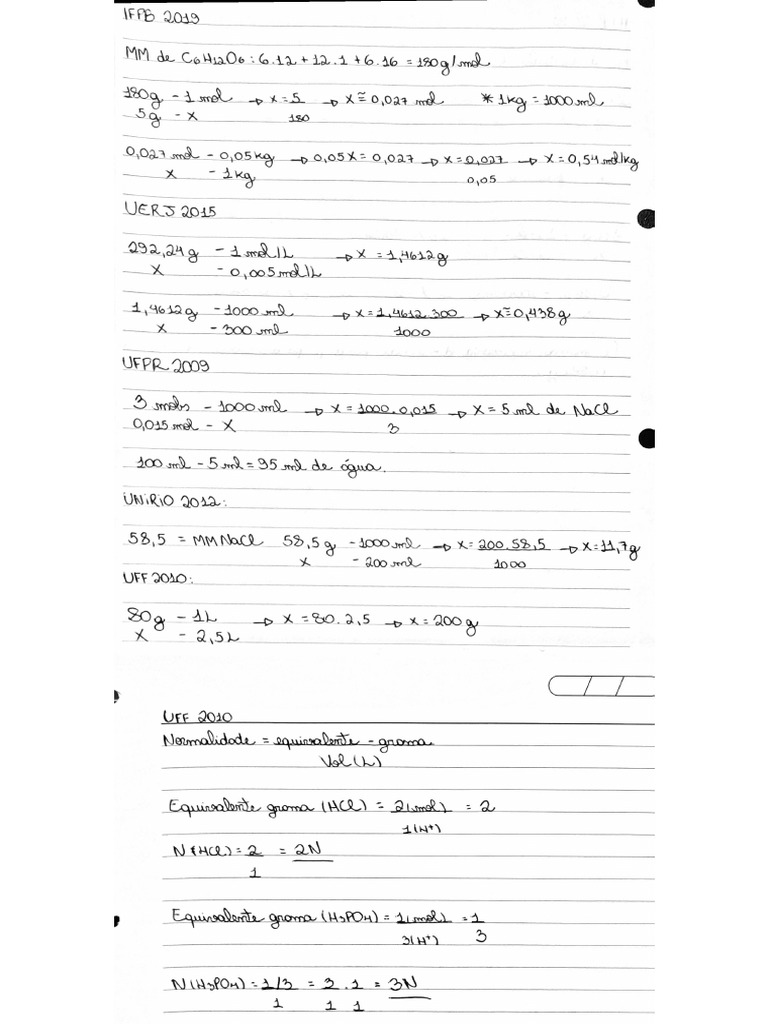 IFPB 2019
MM de C6H12O6: 6.12 + 12.1 + 6.16 = 180g/mol
180g - 1 mol → x = 5/180 → x ≅ 0,027 mol * 1kg = 1000 ml
5g - x
0,027 mol - 0,05kg → 0,05x = 0,027 → x = 0,027/0,05 → x = 0,54 mol/kg
x - 1kg
UERJ 2015
292,24g - 1 mol/L → x = 1,4612g
x - 0,005 mol/L
1,4612g - 1000 ml → x = 1,4612.300/1000 → x ≅ 0,438g
x - 300 ml
UFPR 2009
3 mols - 1000 ml → x = 1000.0,015/3 → x = 5 ml de NaCl
0,015 mol - x
100 ml - 5 ml = 95 ml de água.
UNIRIO 2012:
58,5 = MM NaCl 58,5g - 1000 ml → x = 200.58,5/1000 → x = 11,7g
x - 200 ml
UFF 2010:
80g - 1L → x = 80.2,5 → x = 200g
x - 2,5L
UFF 2010
Normalidade = equivalente-grama/Vol(L)
Equivalente grama (HCl) = 2(mol)/1(H+) = 2
N(HCl) = 2/1 = 2N
Equivalente grama (H3PO4) = 1(mol)/3(H+) = 1/3
N(H3PO4) = 1/3/1 = 3/1 . 1/1 = 3N